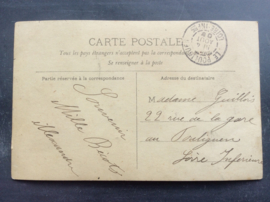 CARTE POSTALE
Tous les pays étrangers n'acceptent pas la correspondance
Se renseigner à la poste
Partie réservée à la correspondance
Adresse du destinataire
Souvenir
Mille
Alexandre
Madame
22 rue de la gare
au Pouliguen
Loire Inférieure